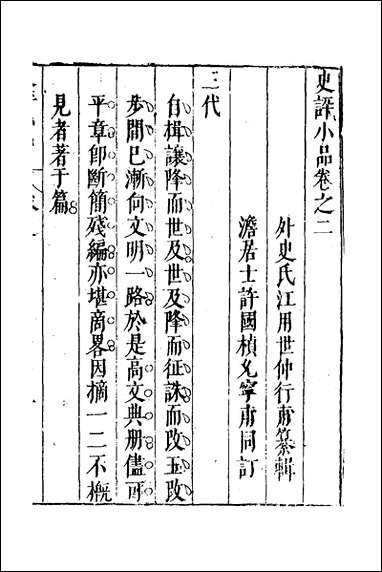 史評小品卷之二
外史氏江用世仲行甫纂輯
澹居士許國楨允寧甫同訂
三代
自楫讓降而世及世及降而征誅而改玉改
步間已漸向文明一路於是高文典册儘可
平章卽斷簡殘編亦堪商畧因摘一二不概
見者著于篇